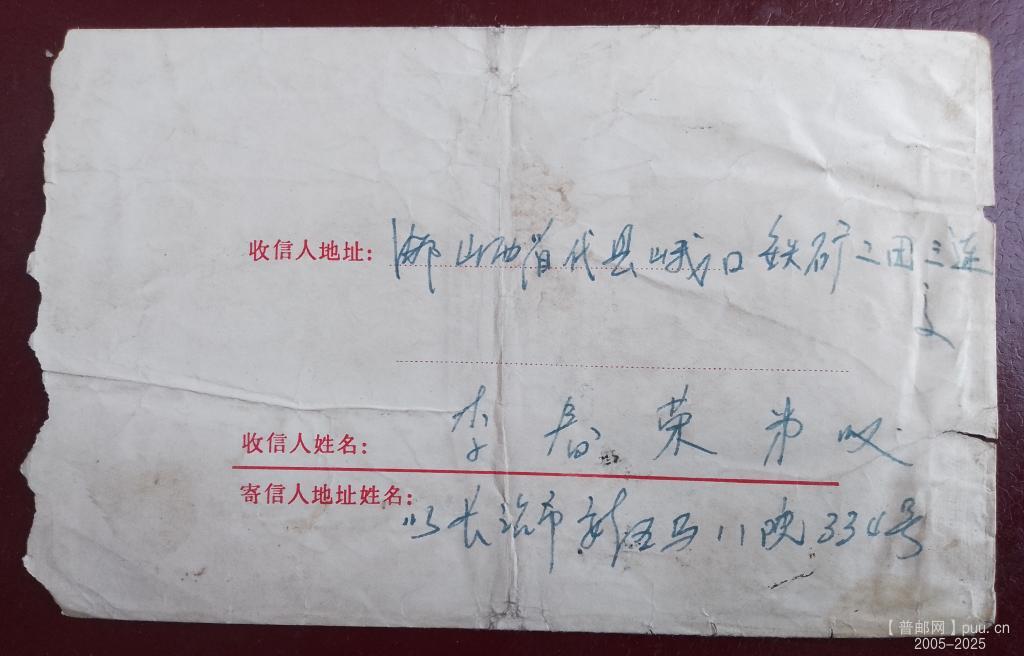 收信人地址: 邮山西省代县峨口铁矿二团三连
交
收信人姓名: 李春荣弟收
寄信人地址姓名: 长治市新五马川院334号
【普邮网】puu.cn
2005-2025